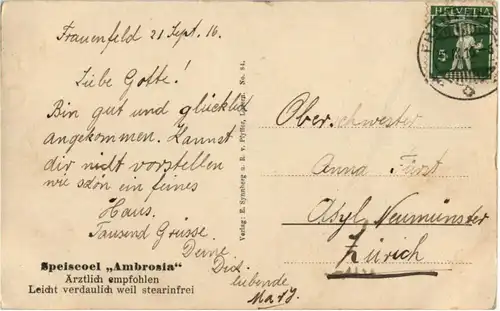 Frauenfeld 21 Sept. 16.
Liebe Gotte!
Bin gut und glücklich
angekommen. Kannst
dir nicht vorstellen
wie schön ein feines
Haus.
Tausend Grüsse
Deine
Dich
liebende
Speiseoel „Ambrosia“
Ärztlich empfohlen
Leicht verdaulich weil stearinfrei
Verlag: E. Synnberg u. R. v. Pfyffer, Luzern. No. 84.
HELVETIA
5
Oberschwester
Anna Fürst
Asyl Neumünster
Zürich